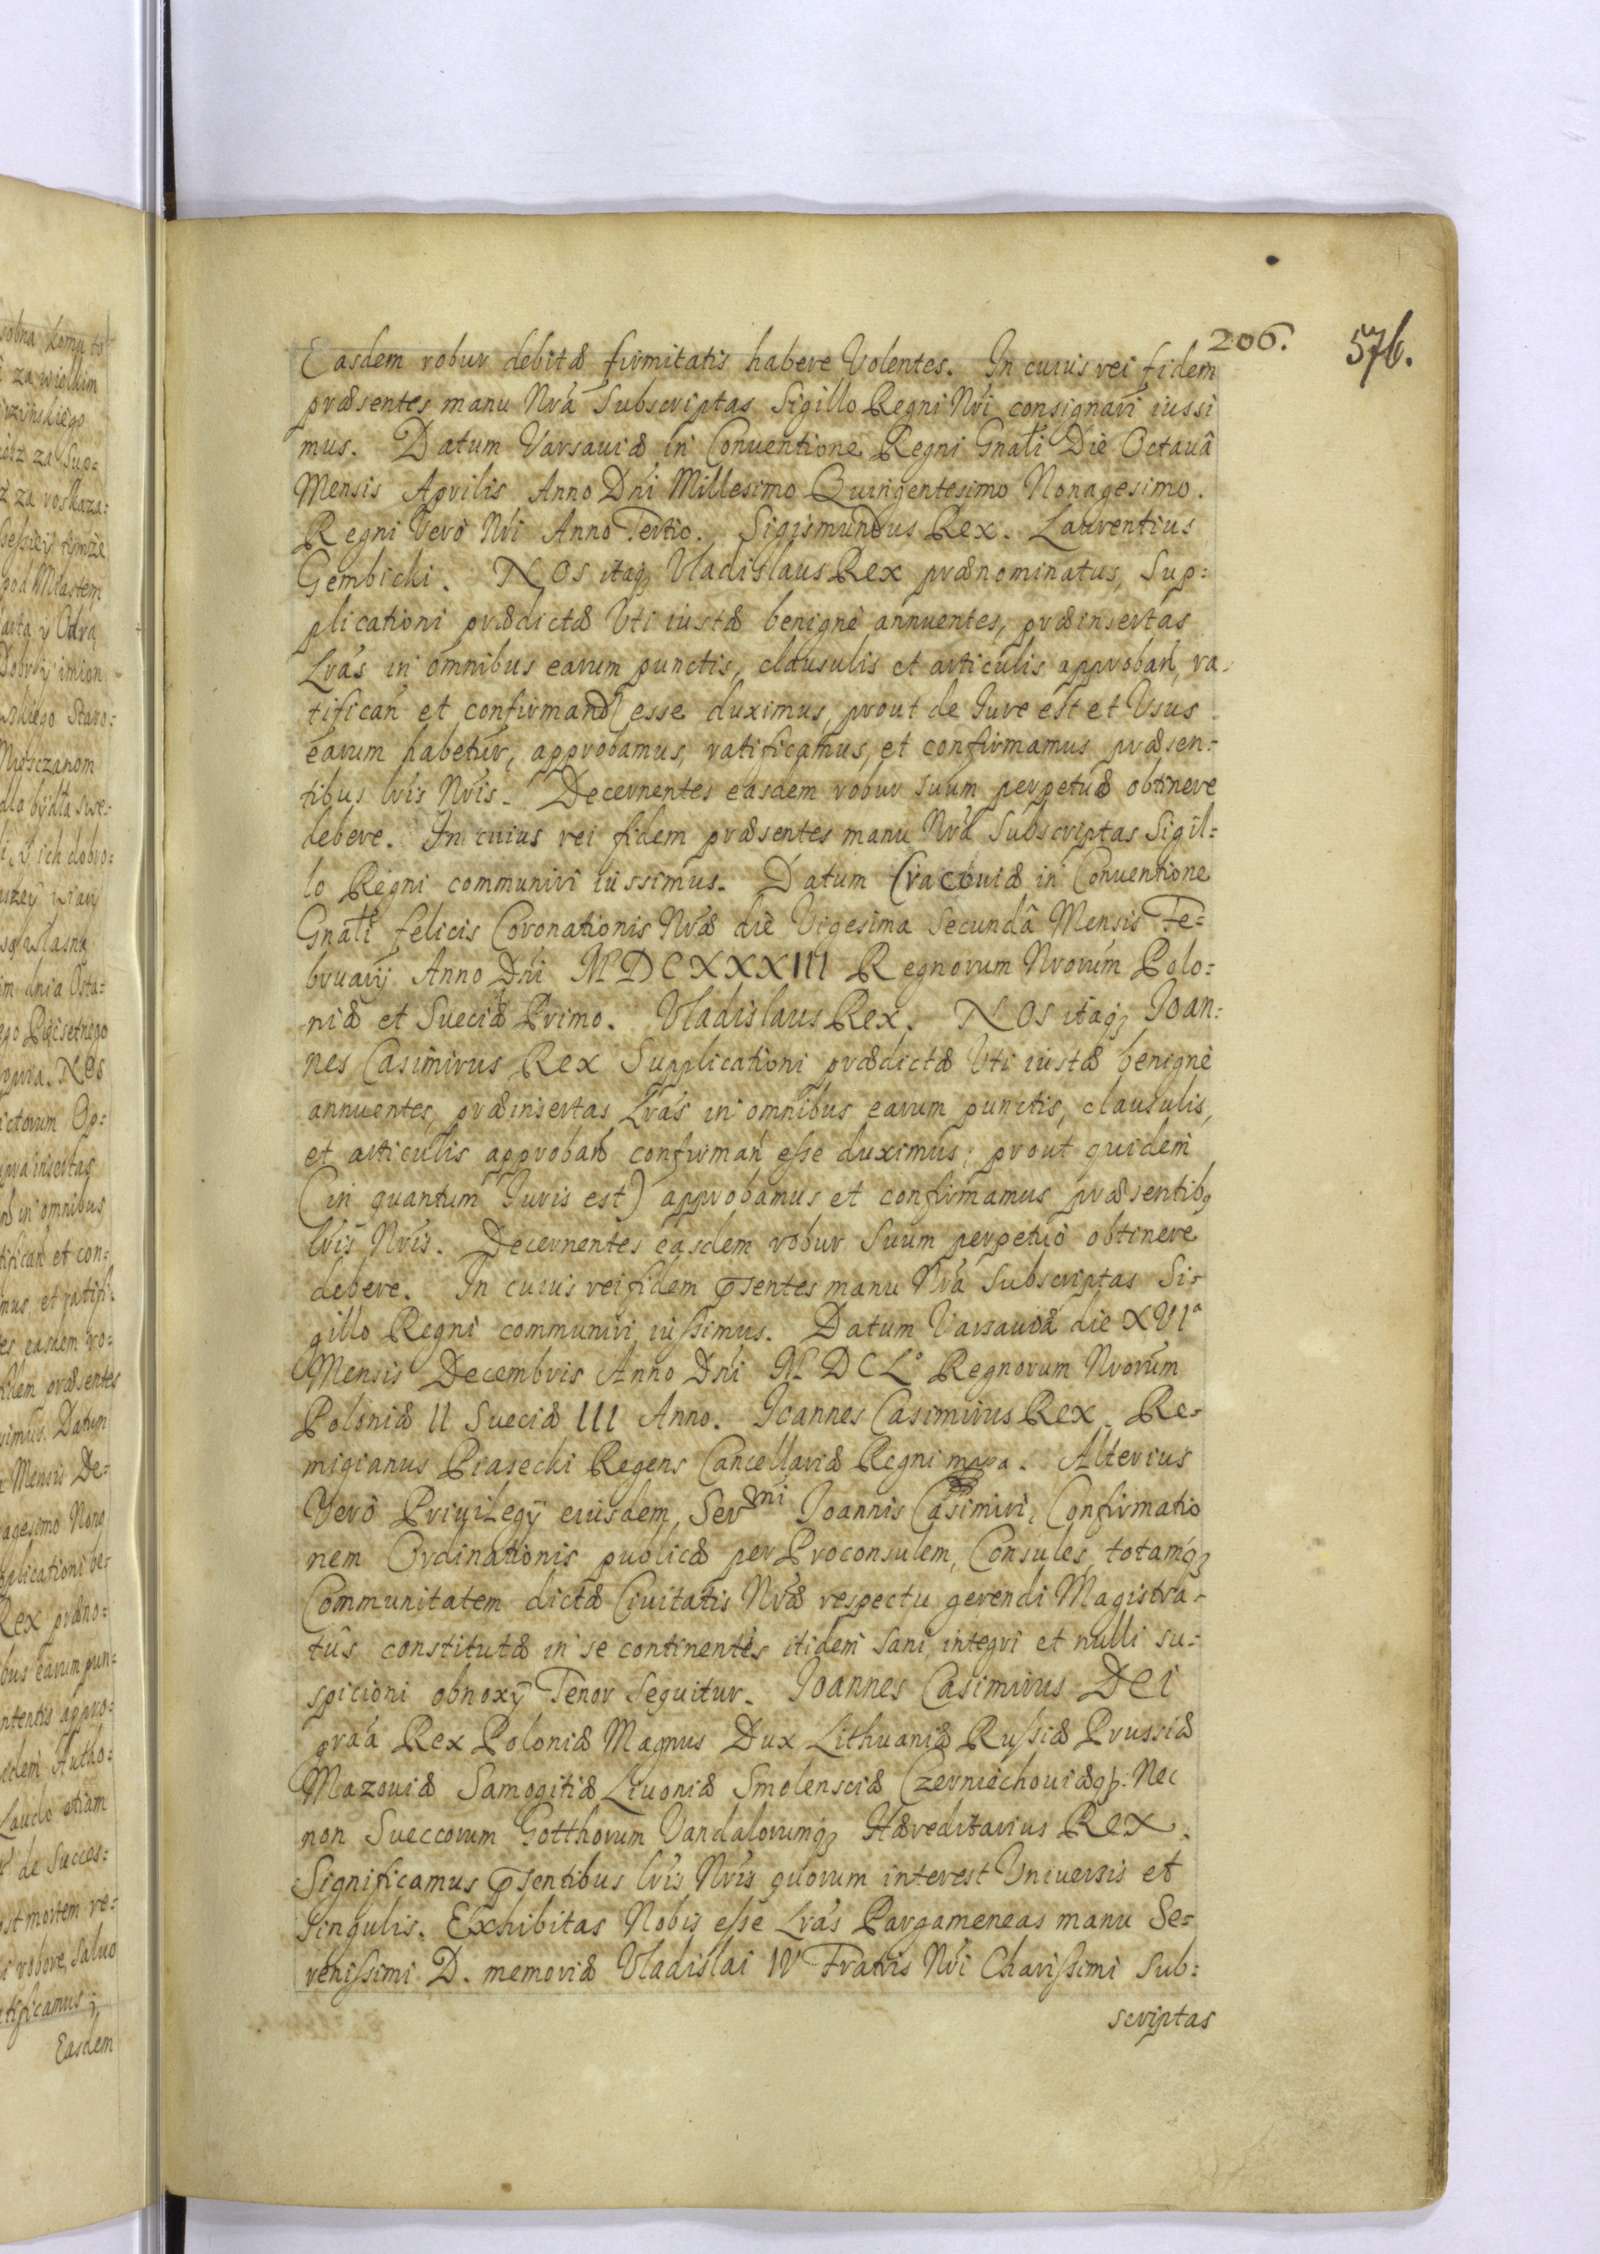 206. 576.
Easdem robur debitæ firmitatis habere Volentes. In cuius rei fidem
præsentes manu Nrá Subscriptas Sigillo Regni Nri consignari iussi
mus. Datum Varsauiæ in Conuentione Regni Gnáli Die Octauâ
Mensis Aprilis Anno Dńi Millesimo Quingentesimo Nonagesimo.
Regni Verò Nri Anno Tertio. Sigismundus Rex. Laurentius
Gembicki. NOS itaqꝫ Vladislaus Rex prænominatus, Sup:
plicationi prædictæ Vti iustæ benignè annuentes, præinsertas
Lrás in omnibus earum punctis, clausulis et articulis approbań, ra-
tifican et confirmand esse duximus, prout de Iure est et Usus
earum habetur, approbamus, ratificamus, et confirmamus præsen:
tibus lris Nris. Decernentes easdem robur suum perpetuæ obtinere
debere. In cuius rei fidem præsentes manu Nrá Subscriptas Sigil:
lo Regni communiri iussimus. Datum Cracouiæ in Conuentione
Gnáli felicis Coronationis Nræ die Vigesima Secundâ Mensis Fe:
bruarij Anno Dńi MDCXXXIII Regnorum Nrorúm Polo:
niæ et Sueciæ Primo. Vladislaus Rex. NOS itaqꝫ Ioan:
nes Casimirus Rex Supplicationi prædictæ Vti iustæ benignè
annuentes, præinsertas Lrás in omnibus earum punctis, clausulis,
et articulis approbań confirmań esse duximus; prout quidem
(in quantum Iuris est) approbamus et confirmamus præsentibꝫ
lris Nris. Decernentes easdem robur Suum perpetuò obtinere
debere. In cuius rei fidem p̄sentes manu Nrá Subscriptas Si-
gillo Regni communiri iussimus. Datum Varsauiæ die XVIᵃ
Mensis Decembris Anno Dńi MDCLº Regnorum Nrorúm
Poloniæ II Sueciæ III Anno. Ioannes Casimirus Rex. Re-
migianus Piasecki Regens Cancellariæ Regni mppa. Alterius
Verò Priuilegÿ eiusdem Serᵐⁿⁱ Ioannis Casimiri, Confirmatio
nem Ordinationis publicæ per Proconsulem, Consules, totamqꝫ
Communitatem dictæ Ciuitatis Nræ respectu gerendi Magistra-
tûs constitutæ in se continentis itidem sani, integri et nulli su-
spicioni obnoxÿ Tenor Sequitur. Ioannes Casimirus DEI
graá Rex Poloniæ Magnus Dux Lithuaniæ Russiæ Prussiæ
Mazouiæ Samogitiæ Liuoniæ Smolensciæ Czerniechouiæqꝫ. Nec
non Sueccorum Gotthorum Vandalorumqꝫ Hæreditarius Rex.
Significamus p̄sentibus lris Nris quorum interest Vniuersis et
singulis. Exhibitas Nobis esse Lrás Pargameneas manu Se-
renissimi D. memoriæ Vladislai IV Fratris Nri Charissimi Sub:
scriptas